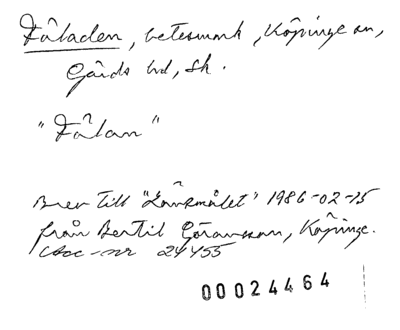 Fâladen, betesmark, Köpinge sn,
Gärds hd, Sk.
"Fâlan"
Brev till "Länsmålet" 1986-02-15
från Bertil Göransson, Köpinge.
Acc-nr 24455
00024464